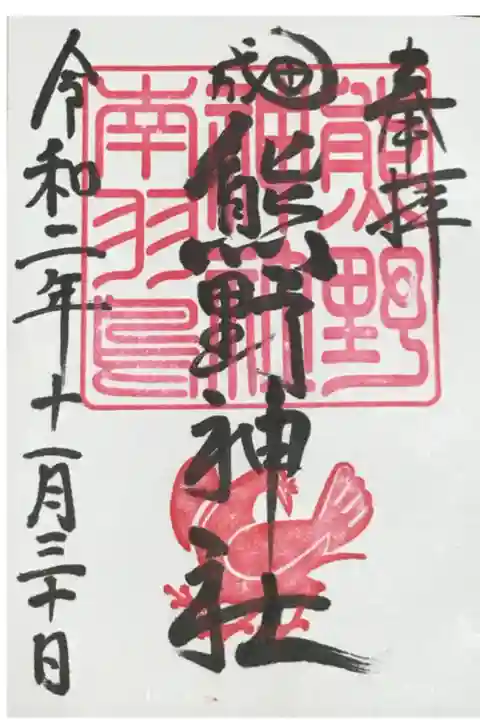 奉拝
成田
熊野神社
令和二年十一月三十日
熊野
神社
南羽鳥